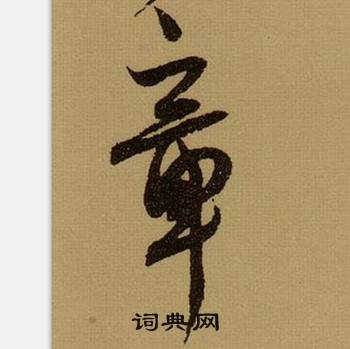 章
词典网